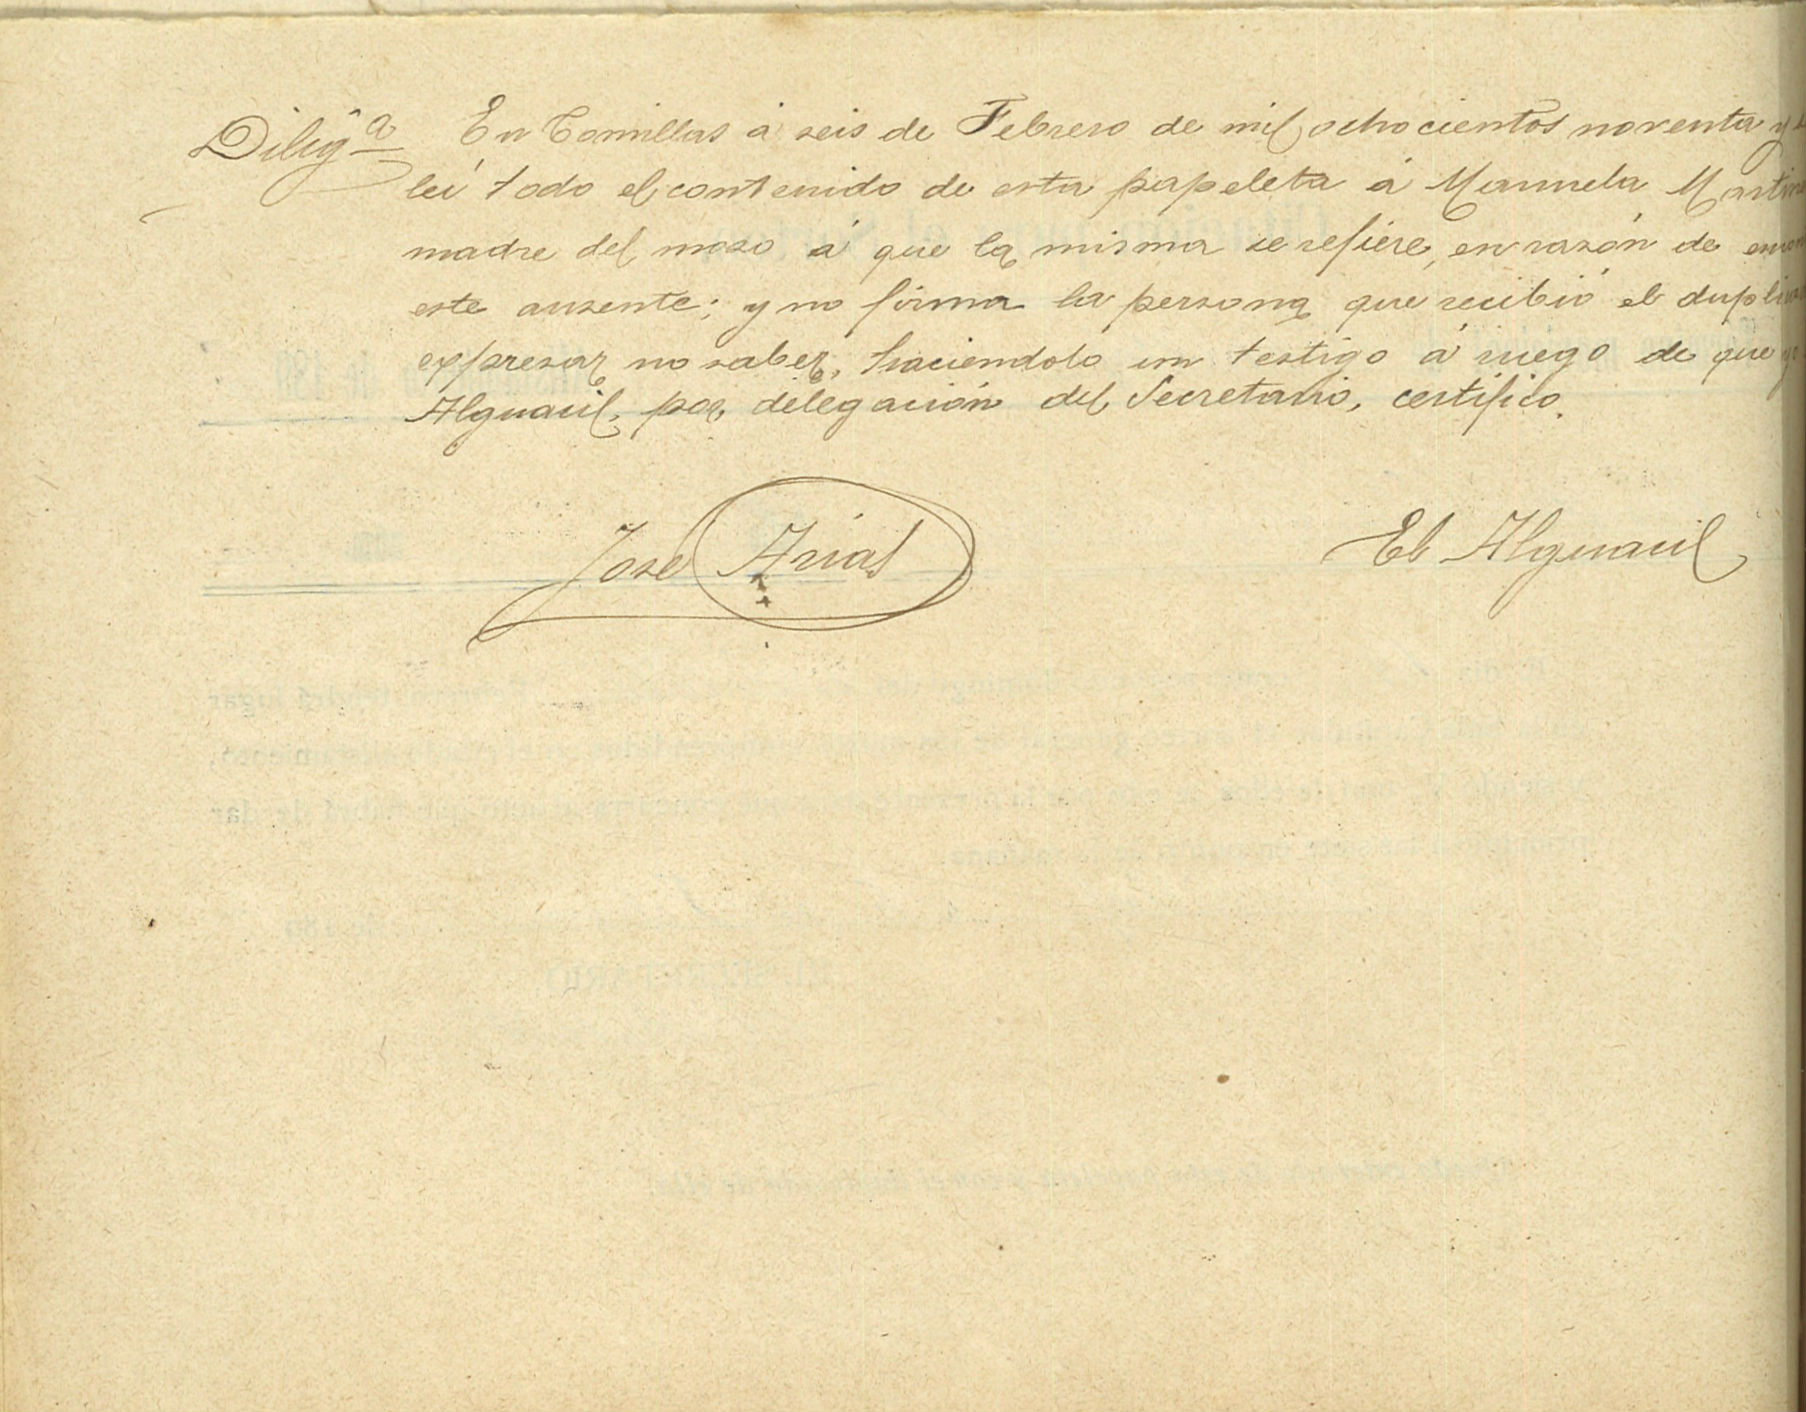 Dilig.ª En Comillas á seis de Febrero de mil ochocientos noventa y
leí todo el contenido de esta papeleta á Manuela Martine
madre del mozo á que la misma se refiere, en razón de
este ausente; y no firma la persona que recibió el duplica
expresar no saber, haciendolo un testigo á ruego de que yo
Alguacil, por delegación del Secretario, certifico.
José Arias
El Alguacil